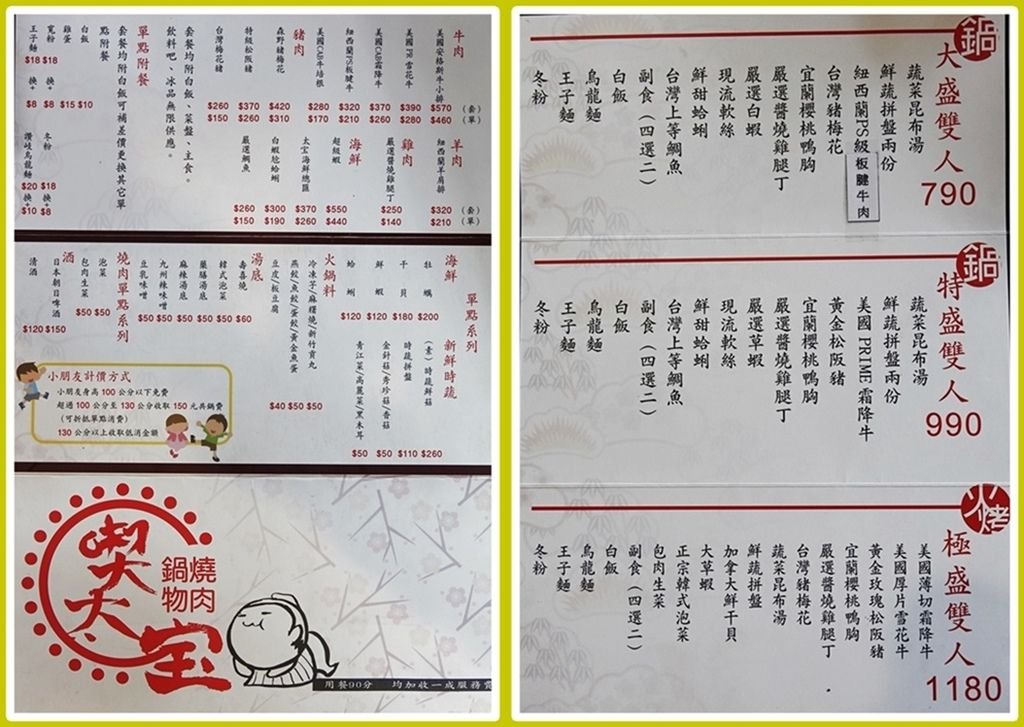 牛肉
（套）
（單）
美國安格斯牛小排 $570 $460
美國PR雪花牛 $390 $280
美國CAB霜降牛 $370 $260
紐西蘭PS板腱牛 $320 $210
美國CAB牛培根 $280 $170
豬肉
森野豬梅花 $420 $310
特級松阪豬 $370 $260
台灣梅花豬 $260 $150
套餐均附白飯、菜盤、主食。
飲料吧、冰品無限供應。
單點附餐
套餐均附白飯可補差價更換其它單點附餐
白飯 $10
雞蛋 $15
寬粉 $18 換+ $8
王子麵 $18 換+ $8
羊肉
（套）
（單）
紐西蘭羊肩排 $320 $210
雞肉
嚴選醬燒雞腿丁 $250 $140
海鮮
超級蝦 $550 $440
大宝海鮮總匯 $370 $260
白蝦尬蛤蜊 $300 $190
嚴選鯛魚 $260 $150
冬粉 $18 換+ $8
讚岐烏龍麵 $20 換+ $10
單點系列
海鮮
牡蠣 $200
干貝 $180
鮮蝦 $120
蛤蜊 $120
火鍋料
冷凍芋/麻糬燒/新竹貢丸 $50
燕餃/魚餃/蛋餃/黃金魚蛋 $50
豆皮/板豆腐 $40
湯底
壽喜燒 $60
韓式泡菜 $50
藥膳湯底 $50
麻辣湯底 $50
九州辣味噌 $50
豆乳味噌 $50
燒肉單點系列
泡菜 $50
包肉生菜 $50
酒
日本朝日啤酒 $150
清酒 $120
新鮮時蔬
（素）時蔬鮮菇 $260
時蔬拼盤 $110
金針菇/秀珍菇/香菇 $50
青江菜/高麗菜/黑木耳 $50
小朋友計價方式
小朋友身高100公分以下免費
超過100公分至130公分收取150元共鍋費
（可折抵單點消費）
130公分以上收取低消金額
喫大宝
燒肉
鍋物
用餐90分 均加收一成服務費
鍋
大盛雙人
790
蔬菜昆布湯
鮮蔬拼盤兩份
紐西蘭PS級板腱牛肉
台灣豬梅花
宜蘭櫻桃鴨胸
嚴選醬燒雞腿丁
嚴選白蝦
現流軟絲
鮮甜蛤蜊
台灣上等鯛魚
副食（四選二）
白飯
烏龍麵
王子麵
冬粉
鍋
特盛雙人
990
蔬菜昆布湯
鮮蔬拼盤兩份
美國PRIME霜降牛
黃金松阪豬
宜蘭櫻桃鴨胸
嚴選醬燒雞腿丁
嚴選草蝦
現流軟絲
鮮甜蛤蜊
台灣上等鯛魚
副食（四選二）
白飯
烏龍麵
王子麵
冬粉
火烤
極盛雙人
1180
美國薄切霜降牛
美國厚片雪花牛
黃金玫瑰松阪豬
宜蘭櫻桃鴨胸
嚴選醬燒雞腿丁
台灣豬梅花
蔬菜昆布湯
鮮蔬拼盤
加拿大鮮干貝
大草蝦
正宗韓式泡菜
包肉生菜
副食（四選二）
白飯
烏龍麵
王子麵
冬粉